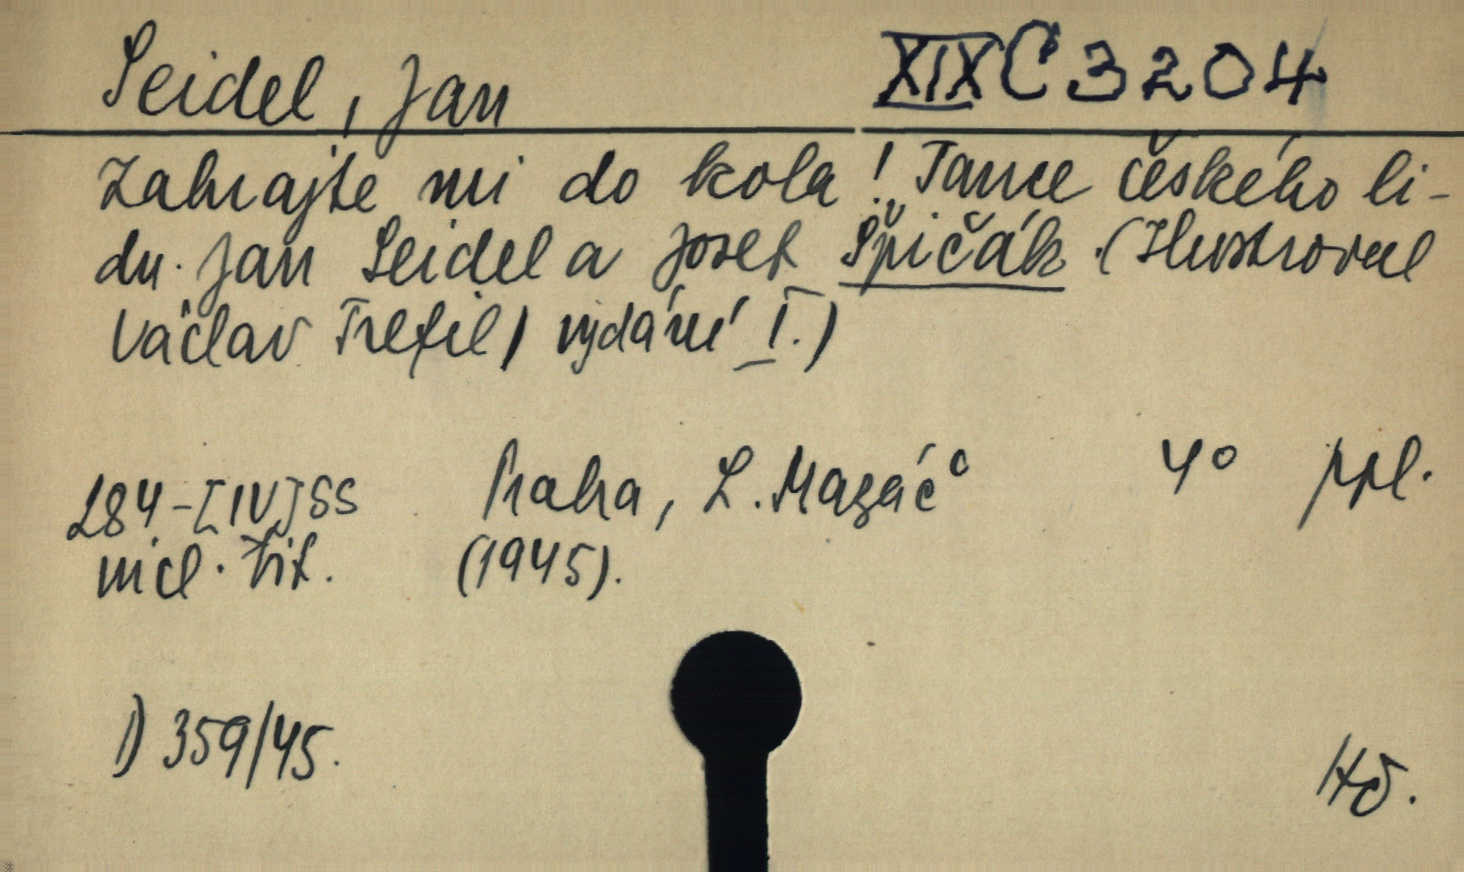 Seidel, Jan XIX C 3204
Zahrajte mi do kola! Tance českého li-
du. Jan Seidel a Josef Špičák. (Ilustroval
Václav Trefil) vydání I.)
284-[IV] SS Praha, L. Mazáč 4° ppl.
incl. tit. (1945).
1) 359/45.